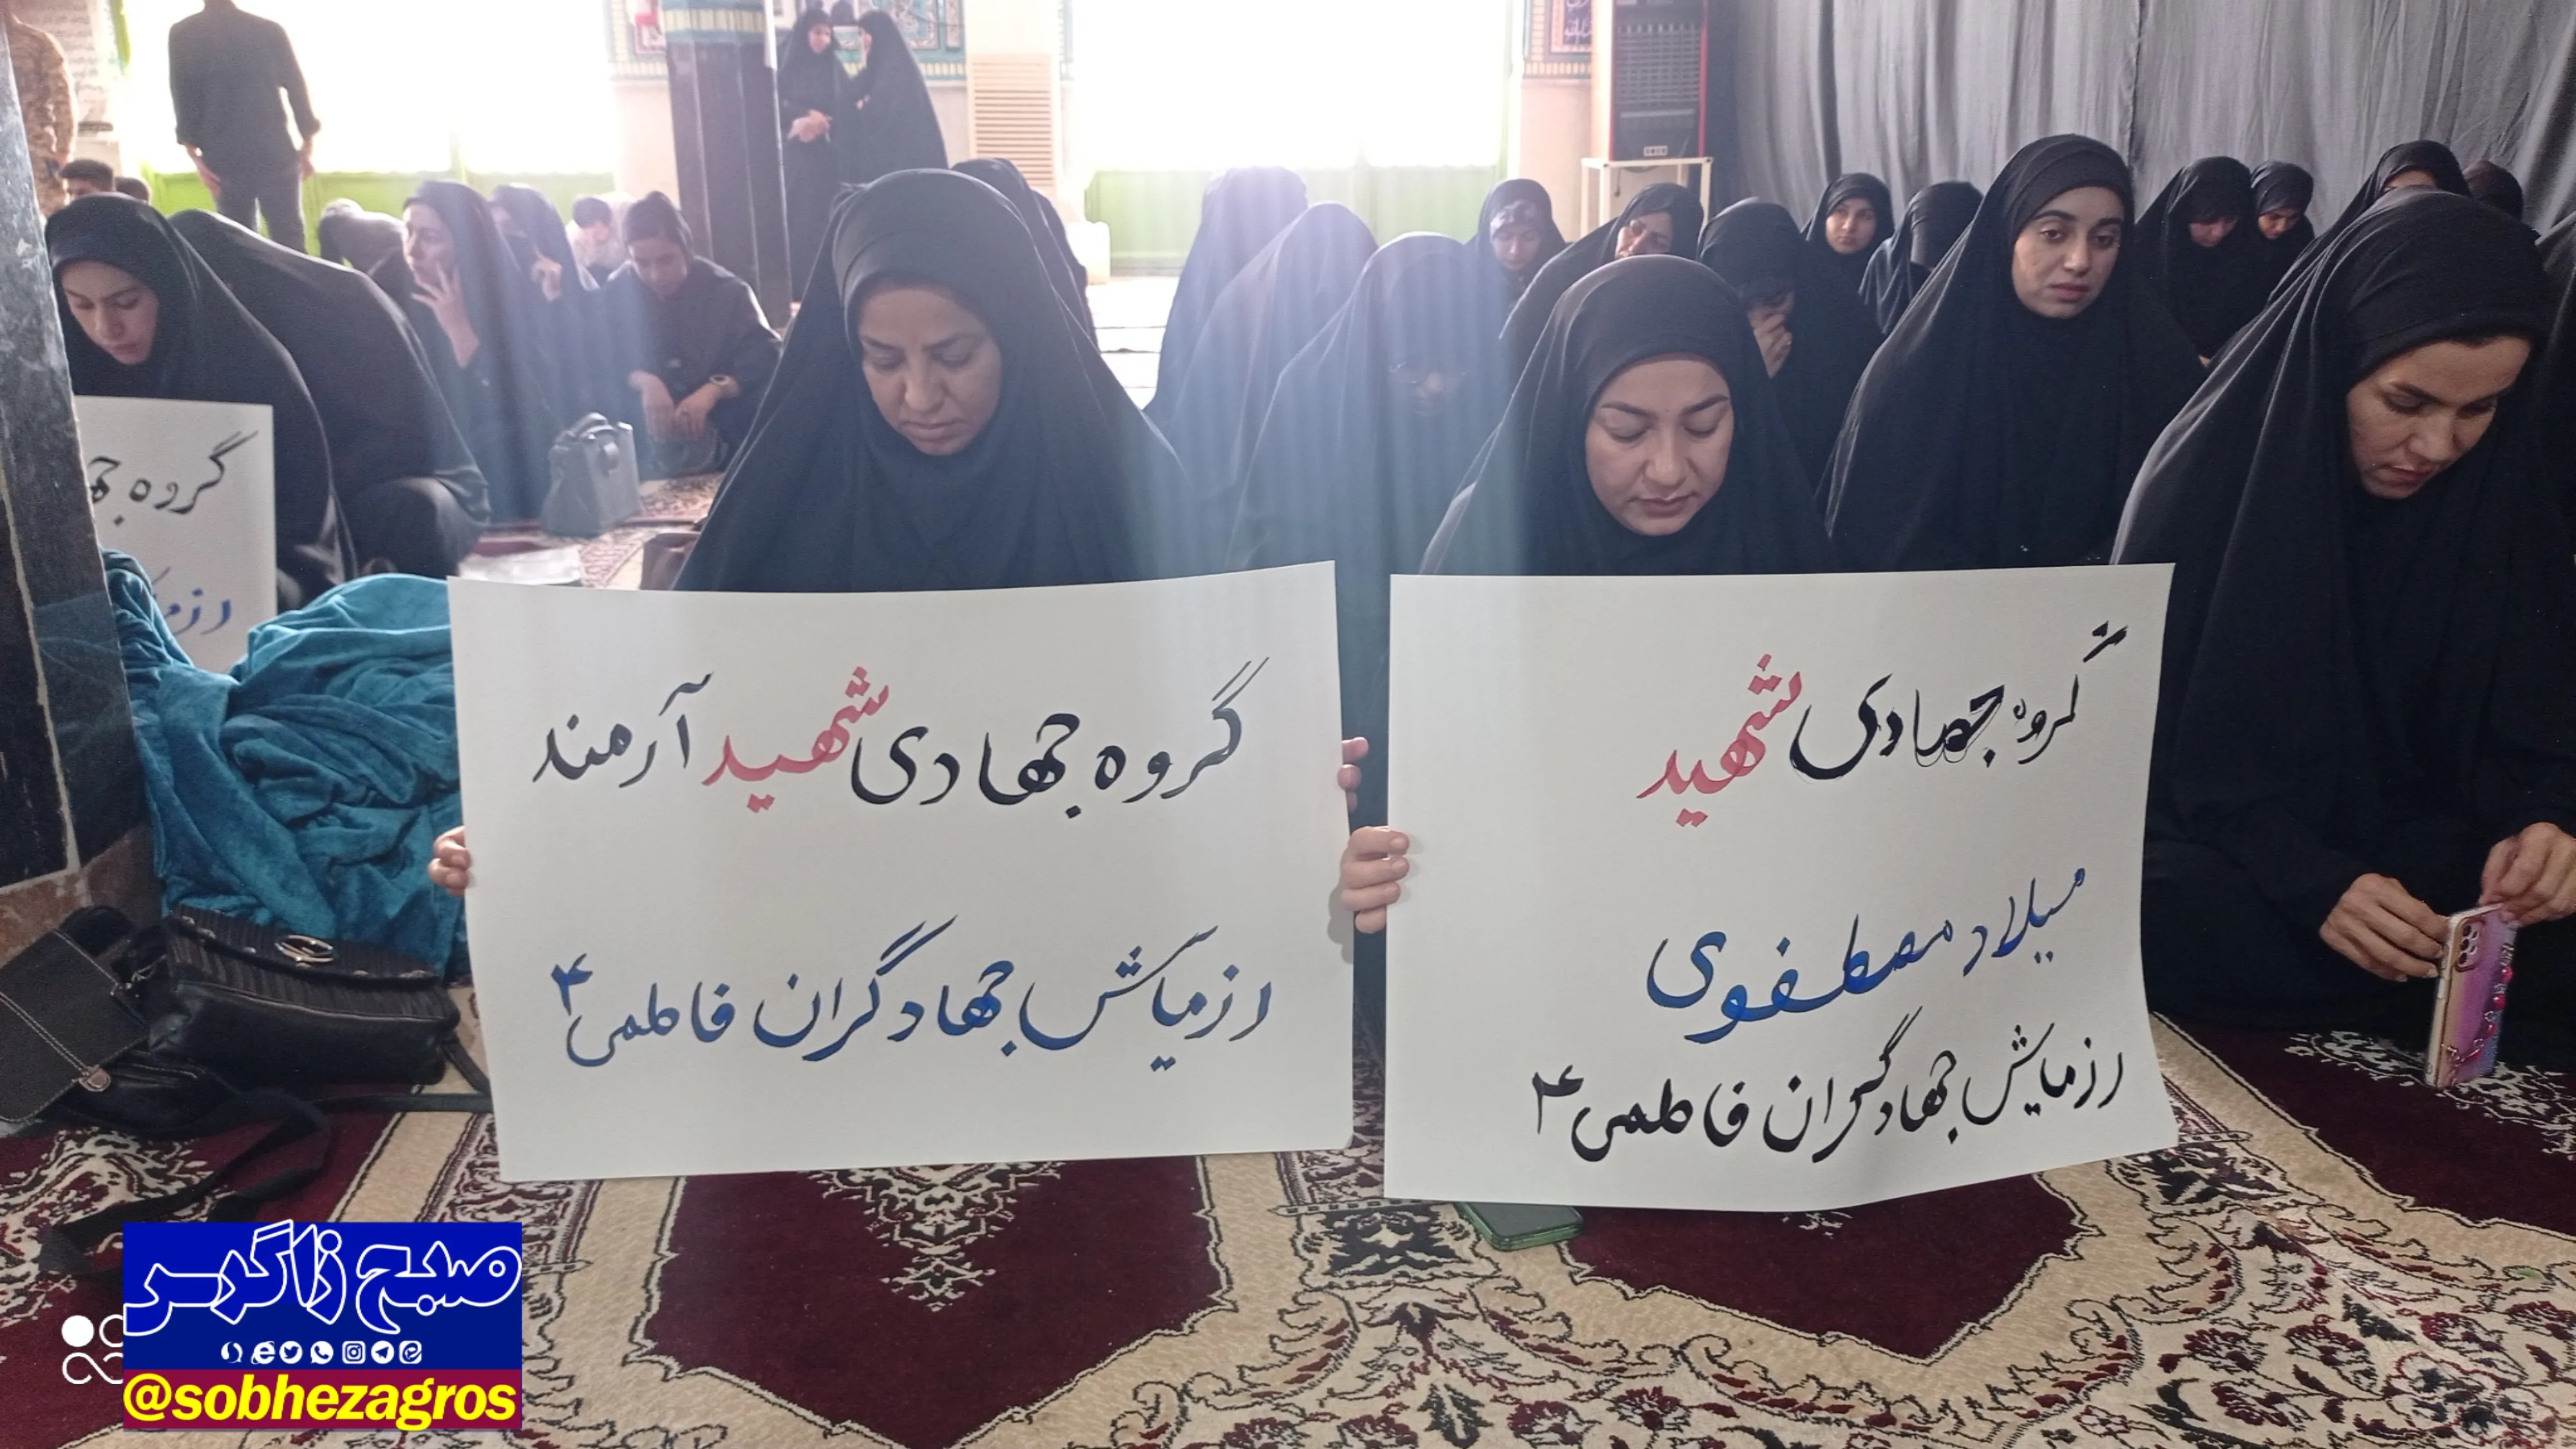 گروه جهادی شهید
میلاد مصطفوی
رزمایش جهادگران فاطمی ۴
گروه جهادی شهید آرمند
رزمایش جهادگران فاطمی ۴
گروه
صبح زاگرس
@sobhezagros